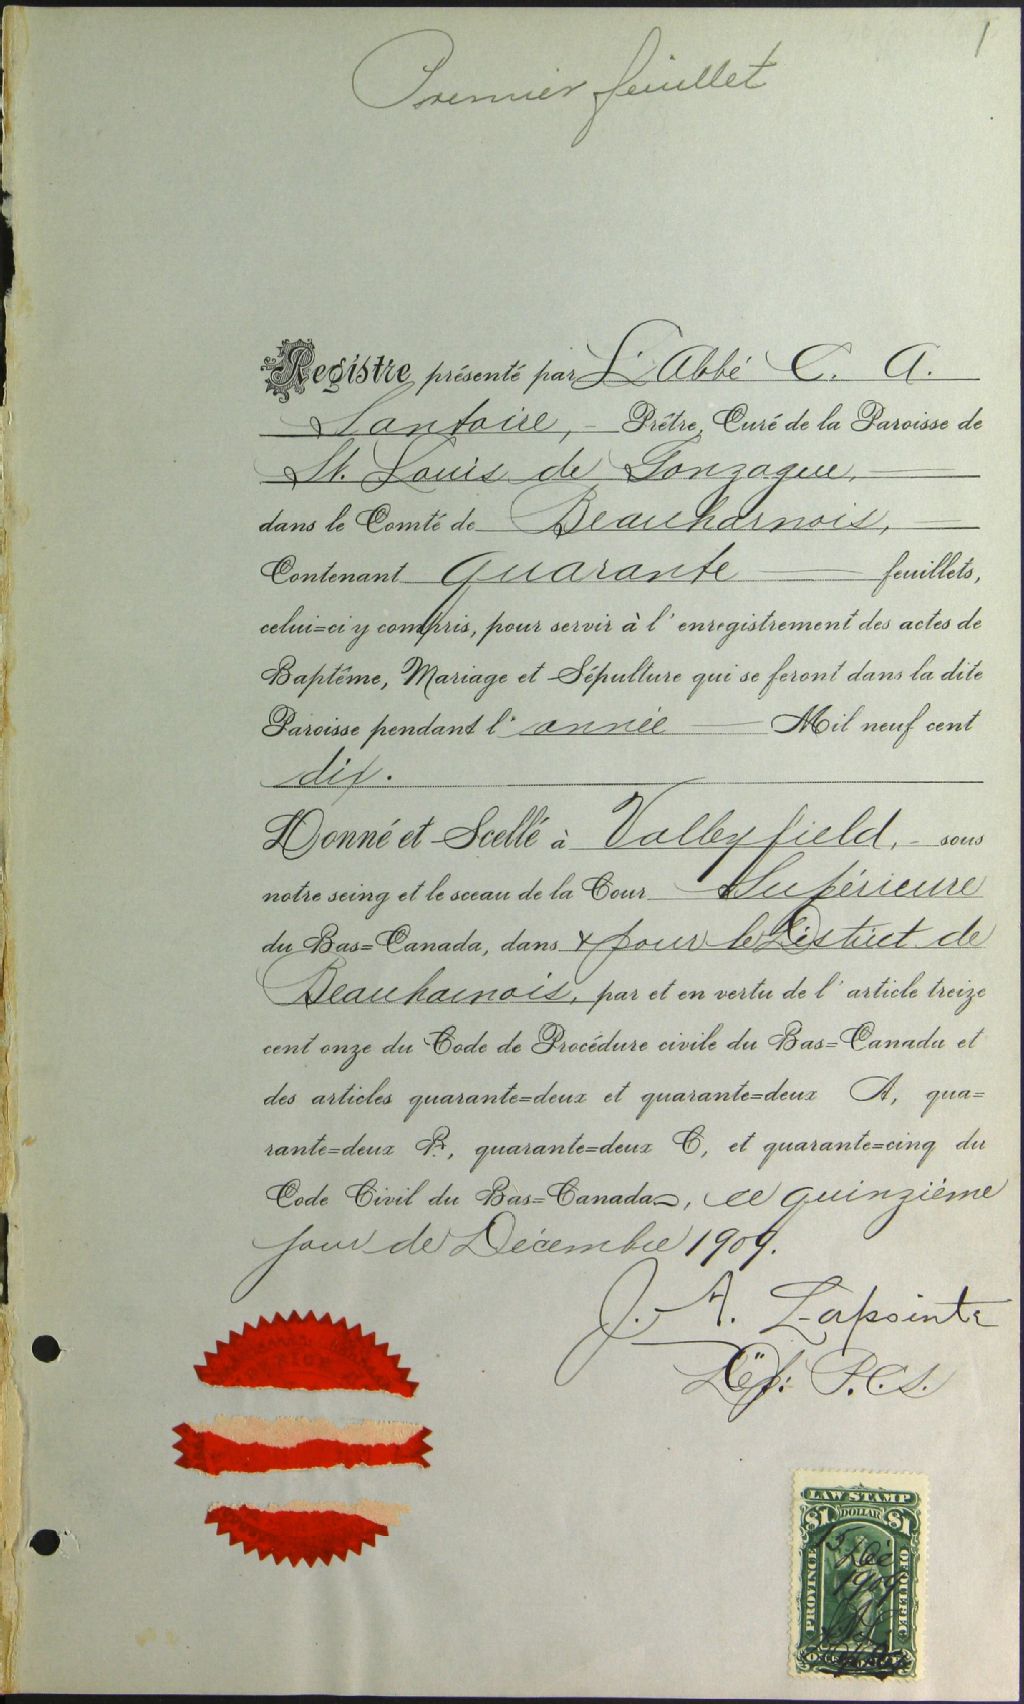 1
Premier feuillet
Registre présenté par L'Abbé C. A.
Santoire, – Prêtre, Curé de la Paroisse de
St. Louis de Gonzague,
dans le Comté de Beauharnois,
Contenant quarante feuillets,
celui=ci y compris, pour servir à l'enregistrement des actes de
Baptême, Mariage et Sépulture qui se feront dans la dite
Paroisse pendant l'année Mil neuf cent
dix.
Donné et Scellé à Valleyfield, – sous
notre seing et le sceau de la Cour Supérieure
du Bas=Canada, dans & pour le District de
Beauharnois, par et en vertu de l'article treize
cent onze du Code de Procédure civile du Bas=Canada et
des articles quarante=deux et quarante=deux A, qua=
rante=deux B, quarante=deux C, et quarante=cinq du
Code Civil du Bas=Canada, ce quinzième
jour de Décembre 1909.
J. A. Lapointe
Dép. P.C.S.
LAW STAMP
$1 DOLLAR $1
PROVINCE OF QUEBEC
15 Déc
1909